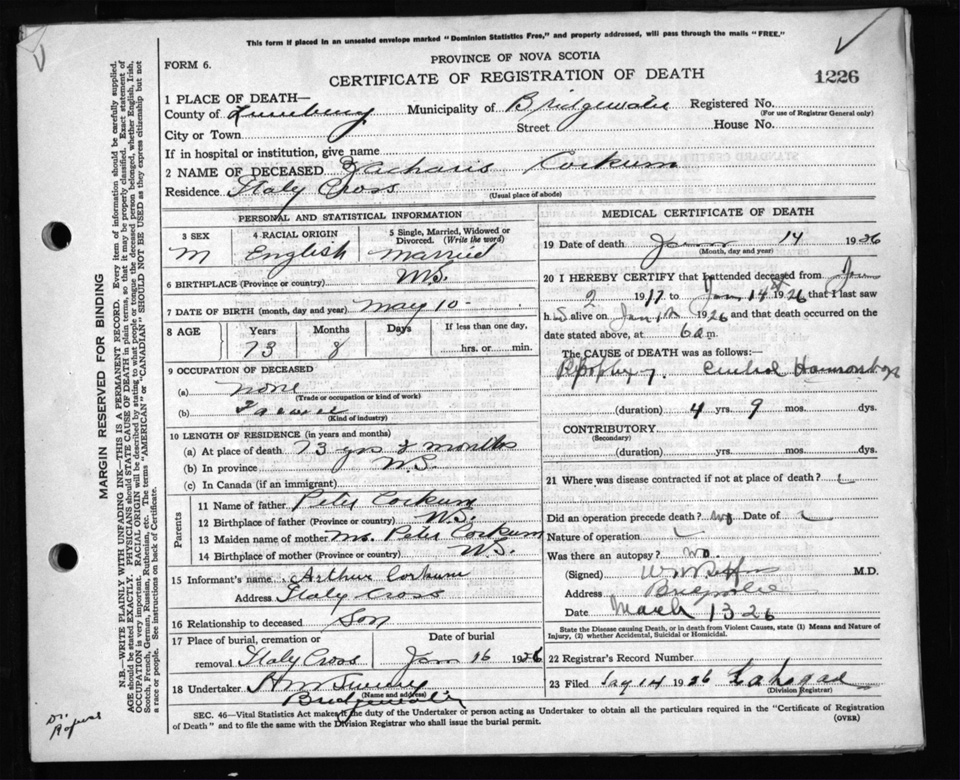 This form if placed in an unsealed envelope marked "Dominion Statistics Free," and properly addressed, will pass through the mails "FREE."
FORM 6.
PROVINCE OF NOVA SCOTIA
CERTIFICATE OF REGISTRATION OF DEATH
1226
1 PLACE OF DEATH—
County of Lunenburg Municipality of Bridgewater Registered No.
(For use of Registrar General only)
City or Town Street House No.
If in hospital or institution, give name
2 NAME OF DECEASED Zacharis Corkum
Residence Italy Cross
(Usual place of abode)
PERSONAL AND STATISTICAL INFORMATION
3 SEX 4 RACIAL ORIGIN 5 Single, Married, Widowed or Divorced. (Write the word)
M English Married
6 BIRTHPLACE (Province or country) N.S.
7 DATE OF BIRTH (month, day and year) May 10-
8 AGE Years Months Days If less than one day,
73 8 hrs. or min.
9 OCCUPATION OF DECEASED
(a) none
(Trade or occupation or kind of work)
(b) Farmer
(Kind of industry)
10 LENGTH OF RESIDENCE (in years and months)
(a) At place of death 73 yrs 8 months
(b) In province N.S.
(c) In Canada (if an immigrant)
Parents
11 Name of father Peter Corkum
12 Birthplace of father (Province or country) N.S.
13 Maiden name of mother Mrs. Peter Corkum
14 Birthplace of mother (Province or country) N.S.
15 Informant's name Arthur Corkum
Address Italy Cross
16 Relationship to deceased Son
17 Place of burial, cremation or removal Italy Cross
Date of burial Jan 16 1926
18 Undertaker
(Name and address)
Bridgewater
MEDICAL CERTIFICATE OF DEATH
19 Date of death 14 1926
(Month, day and year)
20 I HEREBY CERTIFY that I attended deceased from Jan
2 1917 to Jan 14 1926 that I last saw
h alive on Jan 1926 and that death occurred on the
date stated above, at 6 a m.
The CAUSE OF DEATH was as follows:
Apoplexy.
(duration) 4 yrs. 9 mos. dys.
CONTRIBUTORY
(Secondary)
(duration) yrs. mos. dys.
21 Where was disease contracted if not at place of death?
Did an operation precede death? No Date of
Nature of operation
Was there an autopsy? No.
(Signed) M.D.
Address
Date March 13 26
State the Disease causing Death, or in death from Violent Causes, state (1) Means and Nature of Injury, (2) whether Accidental, Suicidal or Homicidal.
22 Registrar's Record Number
23 Filed 14 1926
(Division Registrar)
SEC. 46—Vital Statistics Act makes it the duty of the Undertaker or person acting as Undertaker to obtain all the particulars required in the "Certificate of Registration
of Death" and to file the same with the Division Registrar who shall issue the burial permit.
(OVER)
MARGIN RESERVED FOR BINDING
N.B.—WRITE PLAINLY WITH UNFADING INK—THIS IS A PERMANENT RECORD. Every item of information should be carefully supplied.
AGE should be stated EXACTLY. PHYSICIANS should STATE CAUSE OF DEATH in plain terms, so that it may be properly classified. Exact statement of
OCCUPATION is very important. RACIAL ORIGIN will be described by stating to what people or tongue the deceased person belonged, whether English, Irish,
Scotch, French, German, Russian, Ruthenian, etc. The terms "AMERICAN" or "CANADIAN" SHOULD NOT BE USED as they express citizenship but not
a race or people. See instructions on back of Certificate.